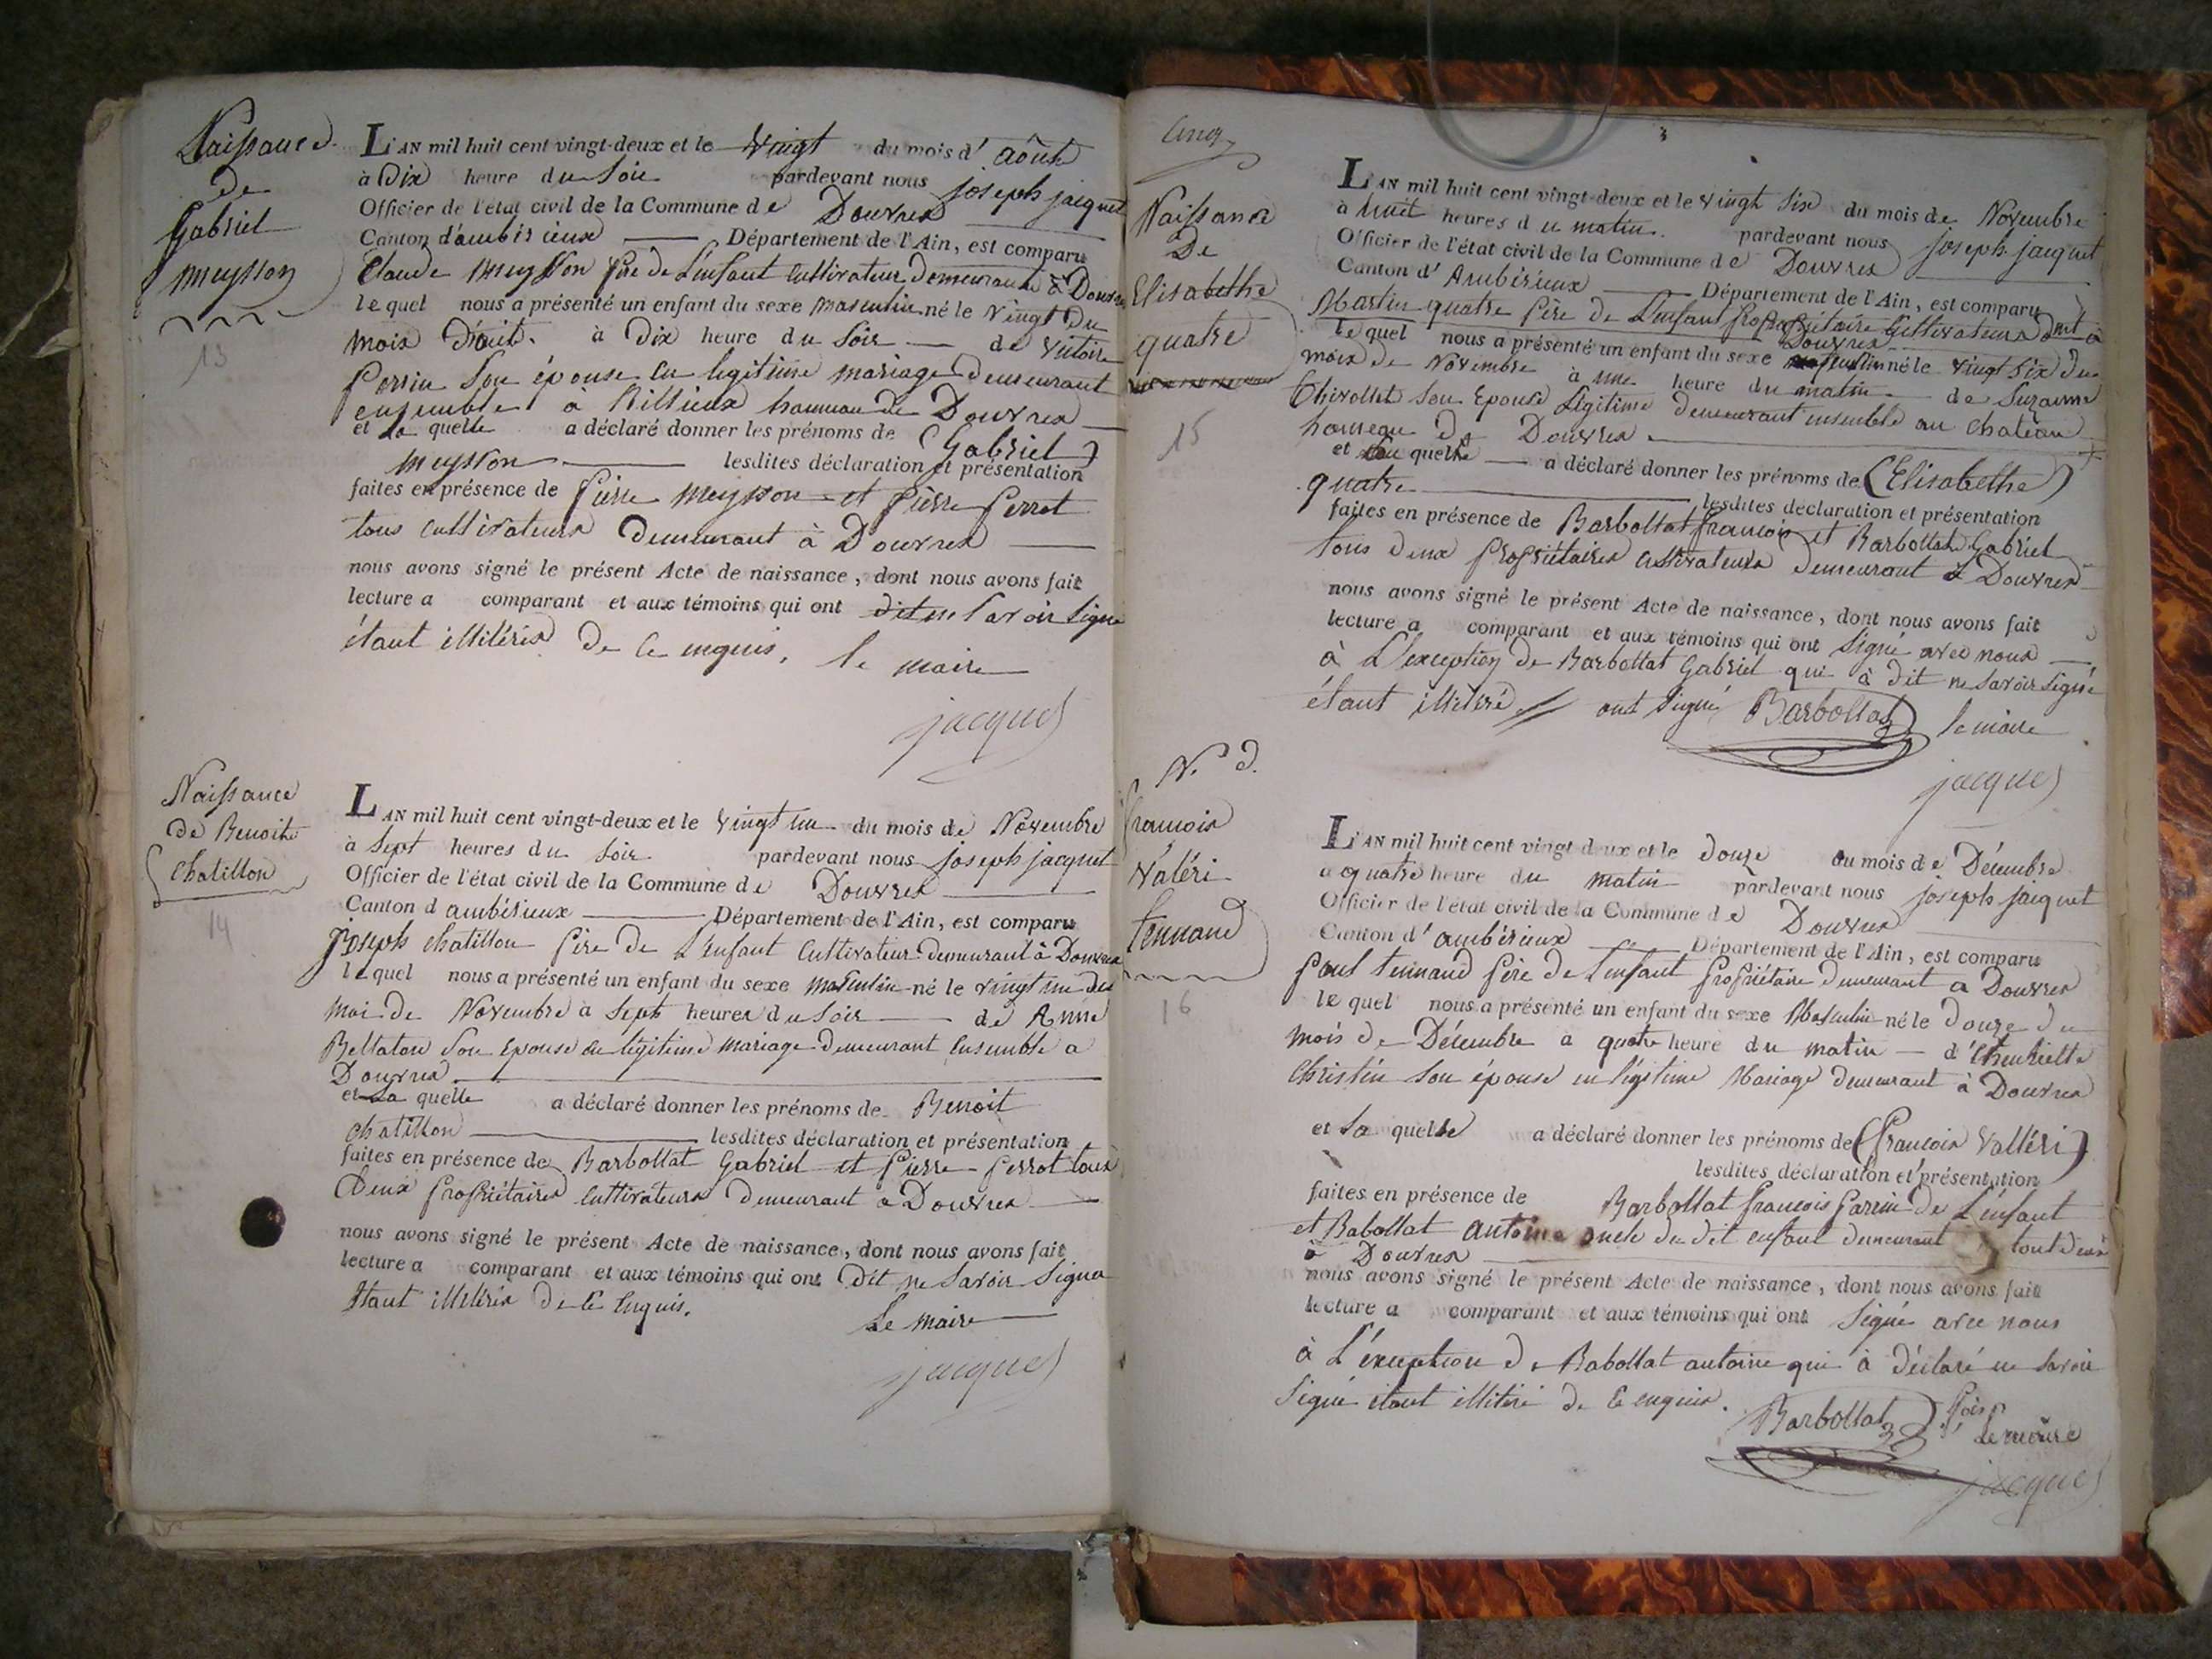 Naissance
de
Gabriel
meysson
13
L'AN mil huit cent vingt-deux et le vingt du mois d' aôut
à dix heure du soir pardevant nous joseph jacquet
Officier de l'état civil de la Commune de Douvres
Canton d'ambérieux Département de l'Ain, est comparu
Claude meysson père de L'enfant cultivateur demeurant à Douvres
lequel nous a présenté un enfant du sexe masculin né le vingt du
mois d'aout. à dix heure du soir de victoire
Perrin son épouse en legitime mariage demeurant
ensemble à Rillieux hammau de Douvres
et la quelle a déclaré donner les prénoms de (Gabriel)
meysson lesdites déclaration et présentation
faites en présence de pierre meysson et pierre perrot
tous cultivateurs demeurant à Douvres
nous avons signé le présent Acte de naissance, dont nous avons fait
lecture a comparant et aux témoins qui ont dit ne savoir signe
étant illitérés de ce enquis. le maire
jacquet
Naissance
de Benoit
Chatillon
14
L'AN mil huit cent vingt-deux et le vingt un du mois de Novembre
à sept heures du soir pardevant nous joseph jacquet
Officier de l'état civil de la Commune de Douvres
Canton d ambérieux Département de l'Ain, est comparu
joseph chatillon père de L'enfant cultivateur demeurant à Douvres
lequel nous a présenté un enfant du sexe masculin né le vingt un du
moi de Novembre à sept heures du soir de Anne
Bellaton son epouse en légitime mariage demeurant ensemble a
Douvres
et la quelle a déclaré donner les prénoms de Benoit
chatillon lesdites déclaration et présentation
faites en présence de Barbollat Gabriel et pierre perrot tous
deux propriétaires cultivateurs demeurant a Douvres
nous avons signé le présent Acte de naissance, dont nous avons fait
lecture a comparant et aux témoins qui ont dit ne savoir signer
Etant illitérés de ce enquis. Le maire
jacquet
cinq
Naissance
De
Elisabethe
quatre
15
L'AN mil huit cent vingt-deux et le vingt six du mois de Novembre
à huit heures du matin pardevant nous joseph jacquet
Officier de l'état civil de la Commune de Douvres
Canton d' Ambérieux Département de l'Ain, est comparu
Martin quatre père de L'enfant propriétaire Cultivateurs dmt à
Douvres
le quel nous a présenté un enfant du sexe né le vingt six du
mois de Novembre à une heure du matin de Suzanne
Chivollet son Epouse Légitime demeurant ensemble au chateau
hameau de Douvres
et quelle a déclaré donner les prénoms de (Elisabethe)
quatre lesdites déclaration et présentation
faites en présence de Barbollat françois et Barbollat Gabriel
tous deux propriétaires cultivateurs demeurant à Douvres
nous avons signé le présent Acte de naissance, dont nous avons fait
lecture a comparant et aux témoins qui ont signé avec nous
à L'exception de Barbollat Gabriel qui à dit ne savoir signé
étant illitéré ont signé Barbollat le maire
jacquet
N. d.
françois
Valéri
tennand
16
L'AN mil huit cent vingt deux et le douze du mois de Décembre
a quatre heure du matin pardevant nous joseph jacquet
Officier de l'état civil de la Commune de Douvres
Canton d' ambérieux Département de l'Ain, est comparu
paul tennand père de l'enfant propriétaire demeurant a Douvres
le quel nous a présenté un enfant du sexe Masculin né le douze du
mois de Décembre a quatre heure du matin
christin son épouse en légitime Mariage demeurant à Douvres
et la quelle a déclaré donner les prénoms de (françois Valléri)
lesdites déclaration et présentation
faites en présence de Barbollat françois parrin de L'enfant
et Babollat antoine oncle du dit enfant demeurant tout deux
à Douvres
nous avons signé le présent Acte de naissance, dont nous avons fait
lecture a comparant et aux témoins qui ont signé avec nous
à L'éxception de Babollat antoine qui à déclaré ne savoir
signé étant illitéré de ce enquis. Barbollat
le maire
jacquet